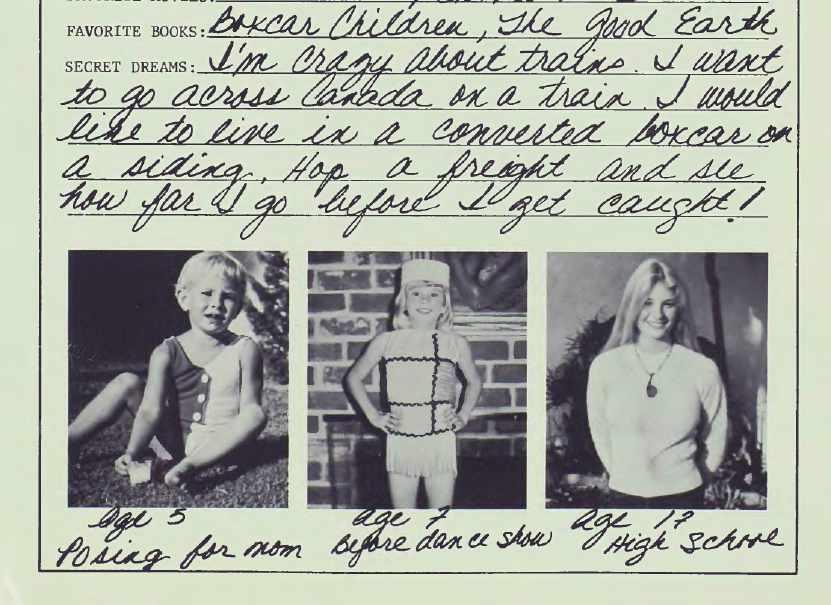 FAVORITE BOOKS: Boxcar Children, The Good Earth
SECRET DREAMS: I'm crazy about trains. I want
to go across Canada on a train. I would
like to live in a converted boxcar on
a siding. Hop a freight and see
how far I go before I get caught!
age 5 age 7 age 17
Posing for mom Before dance show High School